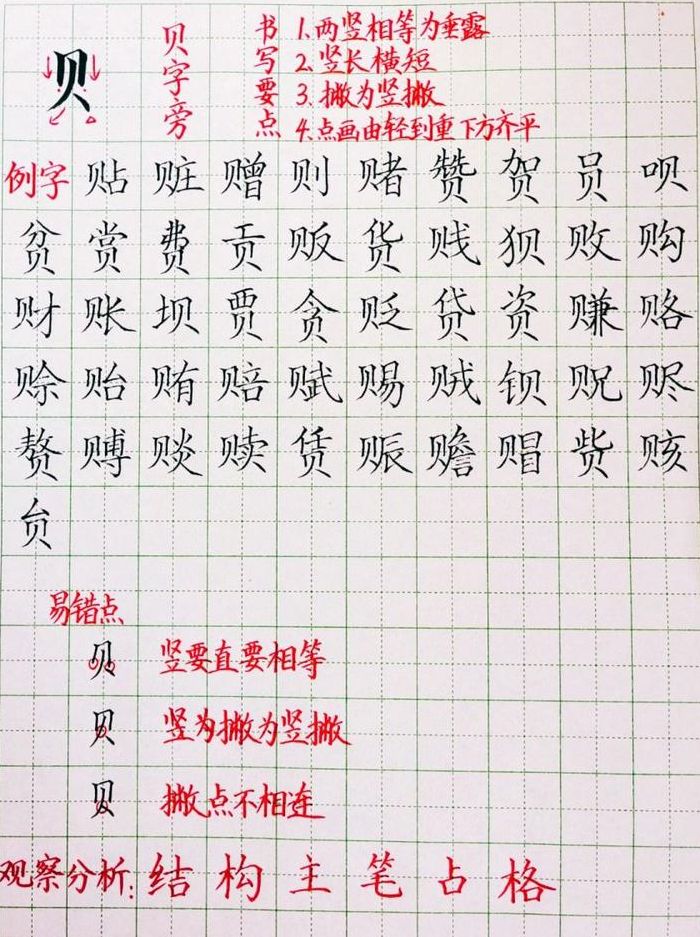 贝
贝字旁
书写要点
1.两竖相等为垂露
2.竖长横短
3.撇为竖撇
4.点画由轻到重下方齐平
例字 贴 赃 赠 则 赌 赞 贺 员 呗
贫 赏 费 贡 贩 货 贱 狈 败 购
财 账 坝 贾 贪 贬 贷 资 赚 赂
赊 贻 贿 赔 赋 赐 贼 钡 贶 赆
赘 赙 赕 赎 赁 赈 赡 赗 赀 赅
贠
易错点
贝 竖要直要相等
贝 竖为撇为竖撇
贝 撇点不相连
观察分析: 结 构 主 笔 占 格